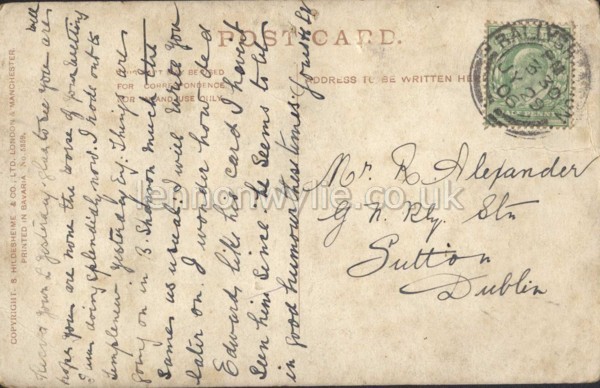 POST CARD.
MAY BE USED
FOR CORRESPONDENCE
INLAND USE ONLY.
ADDRESS TO BE WRITTEN HE
BALLYSH
Mr. R Alexander
G N. Rly. Stn
Sutton
Dublin
yours Glad to see you are well
hope you are none the worse of your wetting
I am doing splendid now. I rode out to
Templenew yesterday Evg. Things are
going on in B. Shannon much the
same as usual. I will write you
later on. I wonder how did
Edward like his card I havent
seen him since. He seems to be
in good humour these times. Yours
COPYRIGHT. S. HILDESHEIMER & CO., LTD. LONDON & MANCHESTER.
PRINTED IN BAVARIA
lennonwylie.co.uk